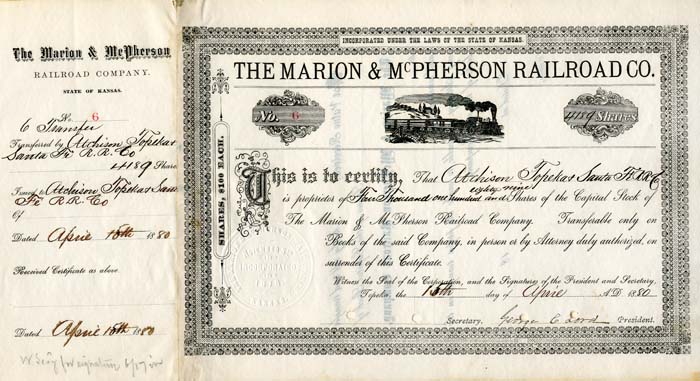 The Marion & McPherson
RAILROAD COMPANY.
STATE OF KANSAS.
No. 6
6 Transfer
Transferred by Atchison Topeka &
Santa Fe R. R. Co
4189 Shares
To Atchison Topeka & Santa
Fe R. R. Co
Of
Dated April 15th 1880
Received Certificate as above.
Dated April 15th 1880
INCORPORATED UNDER THE LAWS OF THE STATE OF KANSAS.
THE MARION & McPHERSON RAILROAD CO.
No. 6
4189 Shares
SHARES, $100 EACH.
This is to certify, That Atchison Topeka & Santa Fe R.R. Co
eighty nine
is proprietor of Four Thousand one hundred and Shares of the Capital Stock of
The Marion & McPherson Railroad Company. Transferable only on
Books of the said Company, in person or by Attorney duly authorized, on
surrender of this Certificate.
Witness the Seal of the Corporation, and the Signatures of the President and Secretary,
Topeka, the 15th day of April A.D. 1880
Secretary. George C Lord President.